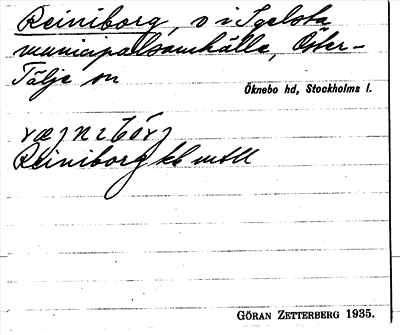 Reiniborg, v i Igelsta
municipalsamhälle, Öster-
Tälje sn
Öknebo hd, Stockholms l.
Reiniborg kb
GÖRAN ZETTERBERG 1935.